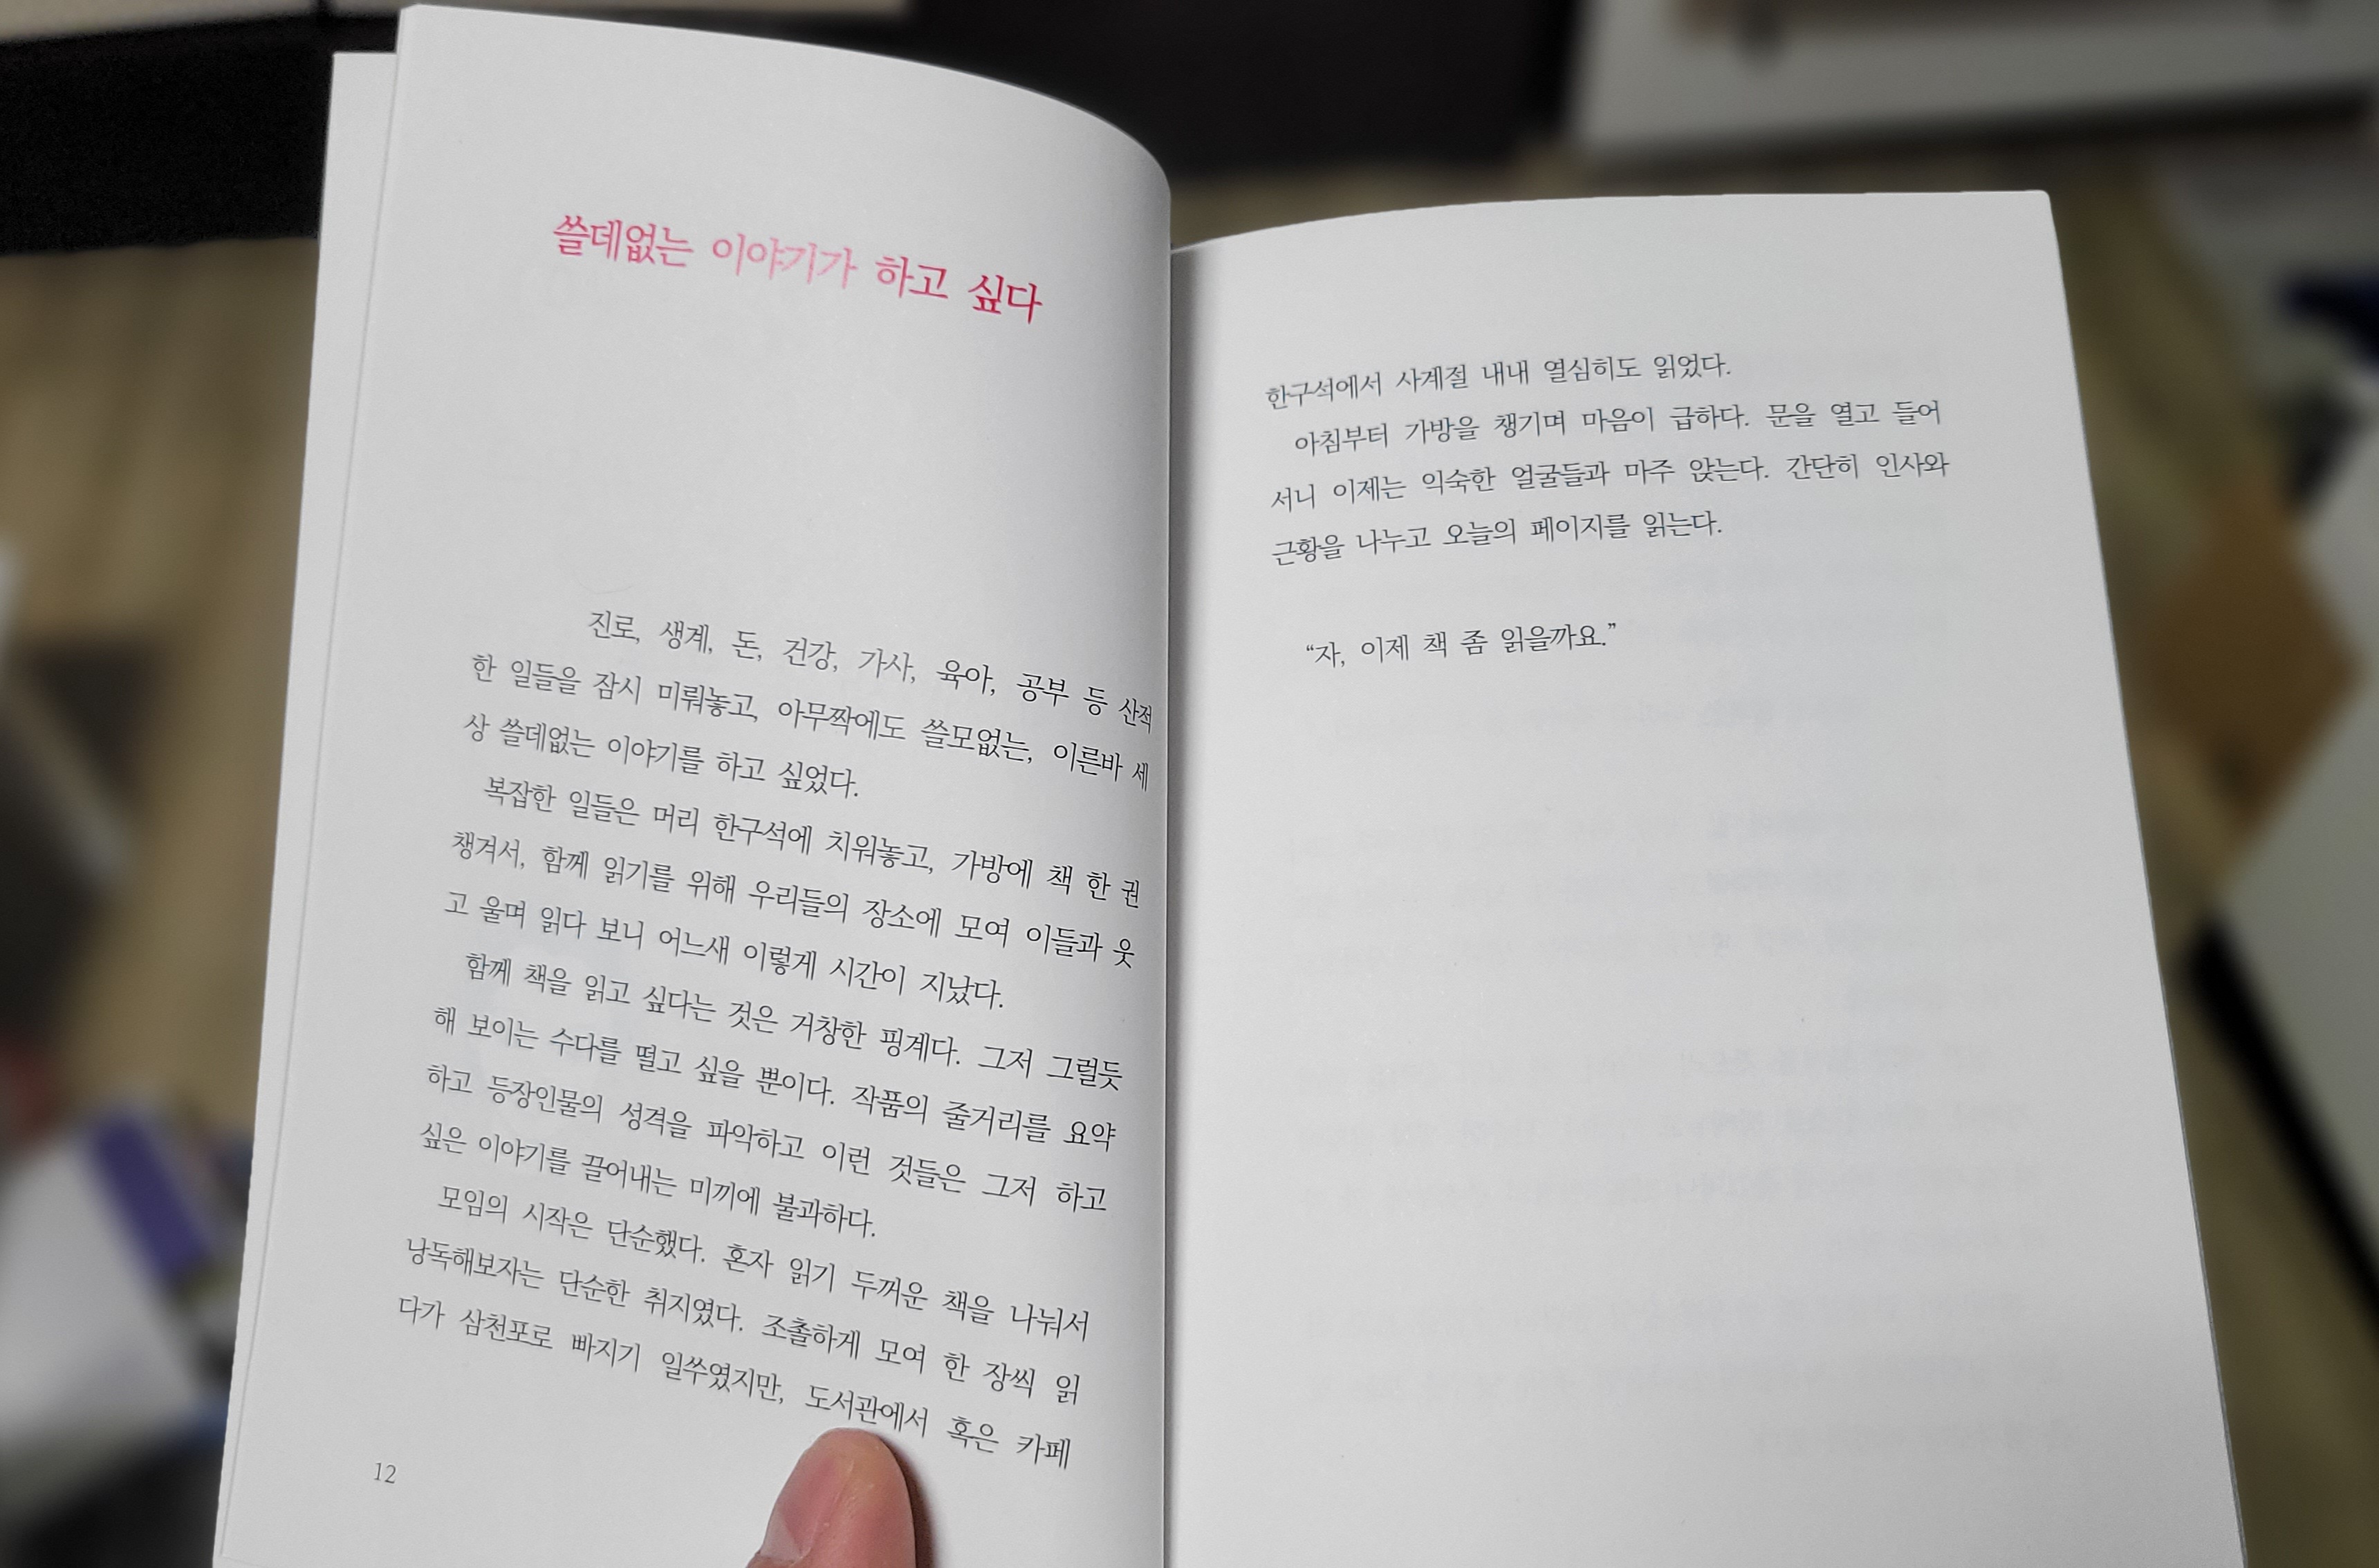 쓸데없는 이야기가 하고 싶다
진로, 생계, 돈, 건강, 가사, 육아, 공부 등 산적
한 일들을 잠시 미뤄놓고, 아무짝에도 쓸모없는, 이른바 세
상 쓸데없는 이야기를 하고 싶었다.
복잡한 일들은 머리 한구석에 치워놓고, 가방에 책 한 권
챙겨서, 함께 읽기를 위해 우리들의 장소에 모여 이들과 웃
고 울며 읽다 보니 어느새 이렇게 시간이 지났다.
함께 책을 읽고 싶다는 것은 거창한 핑계다. 그저 그럴듯
해 보이는 수다를 떨고 싶을 뿐이다. 작품의 줄거리를 요약
하고 등장인물의 성격을 파악하고 이런 것들은 그저 하고
싶은 이야기를 끌어내는 미끼에 불과하다.
모임의 시작은 단순했다. 혼자 읽기 두꺼운 책을 나눠서
낭독해보자는 단순한 취지였다. 조촐하게 모여 한 장씩 읽
다가 삼천포로 빠지기 일쑤였지만, 도서관에서 혹은 카페
12
한구석에서 사계절 내내 열심히도 읽었다.
아침부터 가방을 챙기며 마음이 급하다. 문을 열고 들어
서니 이제는 익숙한 얼굴들과 마주 앉는다. 간단히 인사와
근황을 나누고 오늘의 페이지를 읽는다.
“자, 이제 책 좀 읽을까요.”